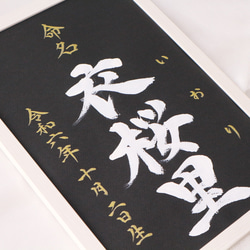 命名
いおり
衣桜里
令和六年十月二日生